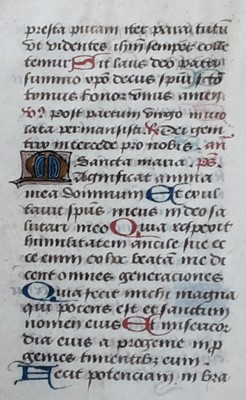 presta putam iter para tutum
Ut videntes ihm semper colle
temur Sit laus deo patri
summo xpo decus spui scto
tonius honor unus amen
V post partum virgo invio
lata permansisti R Dei geni
trix intercede pro nobis an
Sancta maria ps
Magnificat anima
mea dominum Et exul
tavit spus meus in deo sa
lutari meo Quia respexit
humilitatem ancile sue ec
ce enim ex hoc beata me di
cent omnes generaciones
Quia fecit michi magna
qui potens est et sanctum
nomen eius Et misericor
dia eius a progenie in p
genies timentibz eum
Fecit potenciam in bra